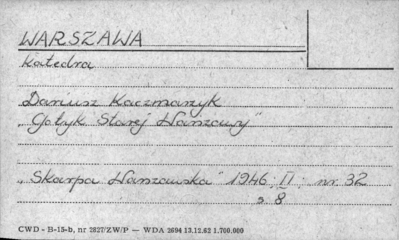 WARSZAWA
Katedra
Dariusz Kaczmarzyk
„Gotyk Starej Warszawy"
„Skarpa Warszawska" 1946 II nr. 32
s. 8
CWD - B-15-b, nr 2827/ZW/P — WDA 2694 13.12.62 1.700.000